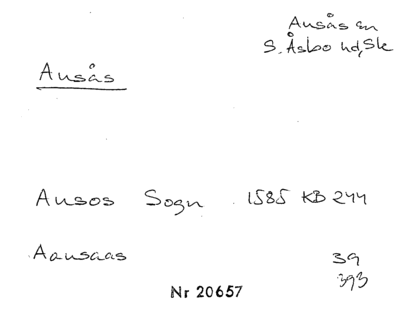 Ausås sn
S. Åsbo hd, Sk
Ausås
Ausos Sogn 1585 KB 244
Aausaas 39
393
Nr 20657